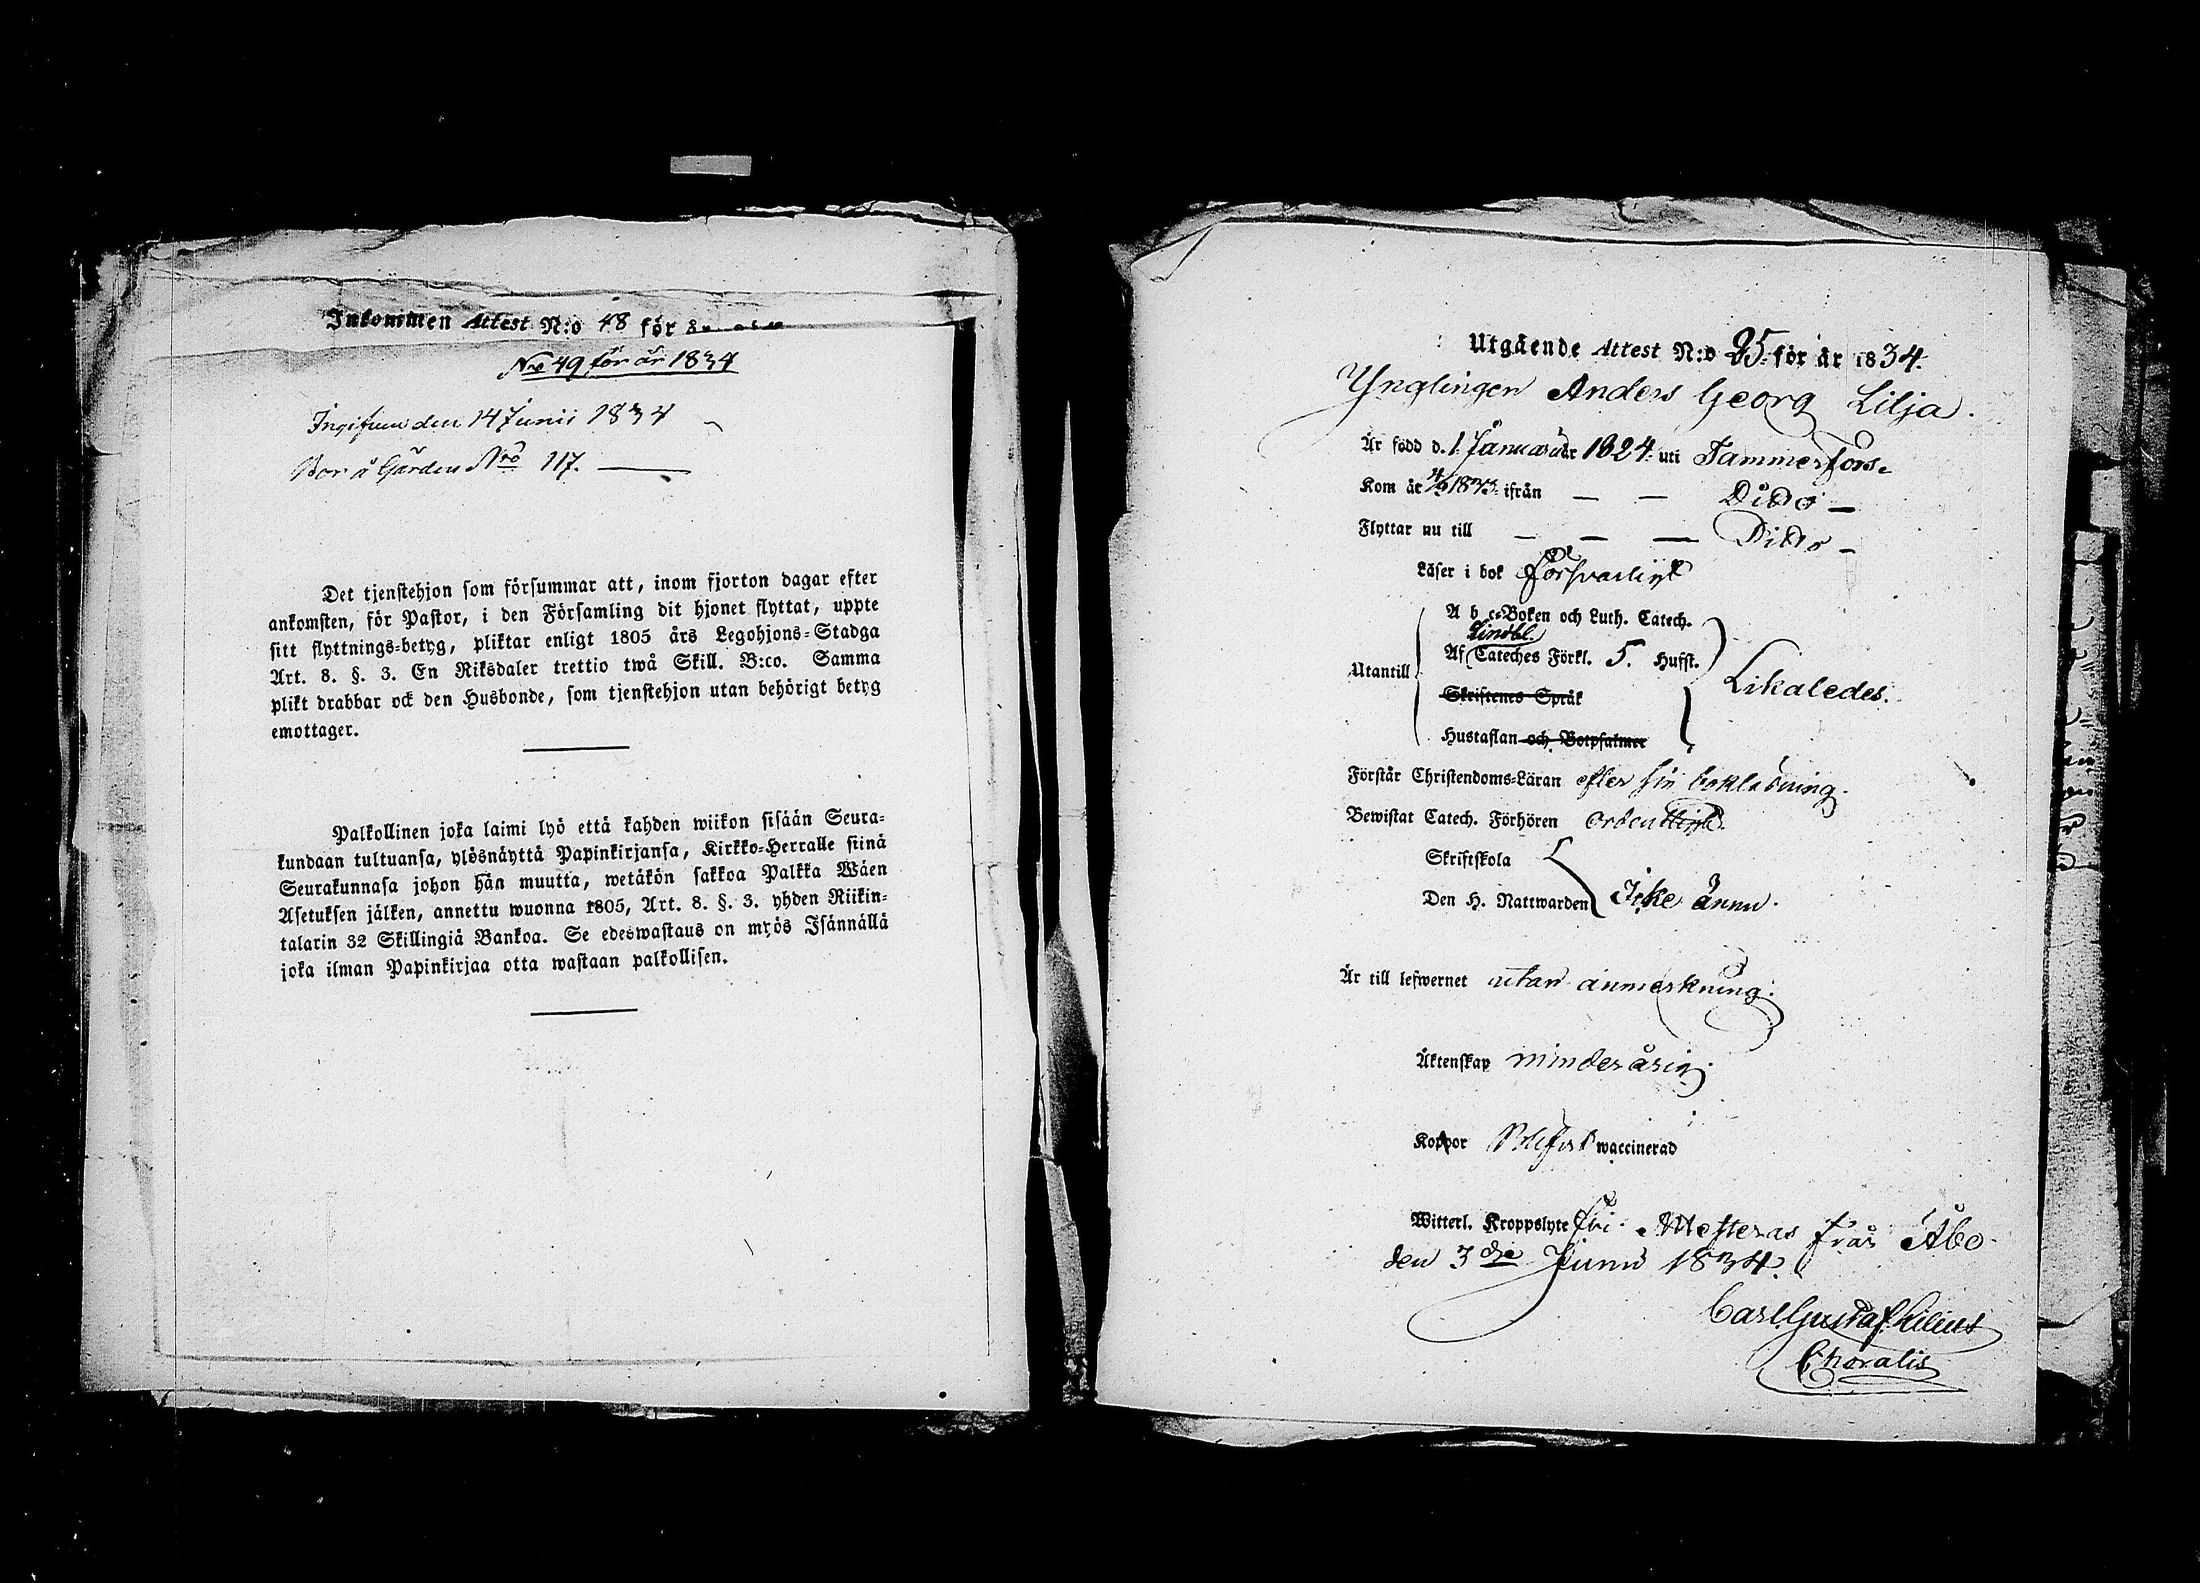 Inkommen Attest N:o 48 för
Nro 49 för år 1834
Ingifven den 14 Junii 1834
Bor å Gården Nro 117.
Det tjenstehjon som försummar att, inom fjorton dagar efter
ankomsten, för Pastor, i den Församling dit hjonet flyttat, uppte
sitt flyttnings-betyg, pliktar enligt 1805 års Legohjons-Stadga
Art. 8. §. 3. En Riksdaler trettio twå Skill. B:co. Samma
plikt drabbar ock den Husbonde, som tjenstehjon utan behörigt betyg
emottager.
Palkollinen joka laimi lyö että kahden wiikon sisään Seura-
kundaan tultuansa, ylösnäyttä Papinkirjansa, Kirkko-Herralle siinä
Seurakunnasa johon hän muutta, wetäkön sakkoa Palkka Wäen
Asetuksen jälken, annettu wuonna 1805, Art. 8. §. 3. yhden Riikin-
talarin 32 Skillingiä Bankoa. Se edeswastaus on myös Isännällä
joka ilman Papinkirjaa otta wastaan palkollisen.
Utgående Attest N:o 95 för år 1834.
Ynglingen Anders Georg Lilja.
Är född d. 1 Januarii år 1824. uti Tammerfors
Kom år 4/9 1833. ifrån — — Dito —
Flyttar nu till — — — Dito —
Läser i bok försvarligt
A b c-Boken och Luth. Catech.
Lindbl.
Utantill Af Cateches Förkl. 5. Hufst. Likaledes.
Skriftenes Språk
Hustaflan och Botpsalmer
Förstår Christendoms-Läran efter sin bokläsning.
Bewistat Catech. Förhören ordentligt.
Skriftskola
Den H. Nattwarden Icke ännu.
Är till lefwernet utan anmerkning.
Äktenskap minderårig.
Koppor waccinerad
Witterl. Kroppslyte fri. Attesteras från Åbo
den 3dje Junii 1834.
Carl Gustaf Lilius
Choralis